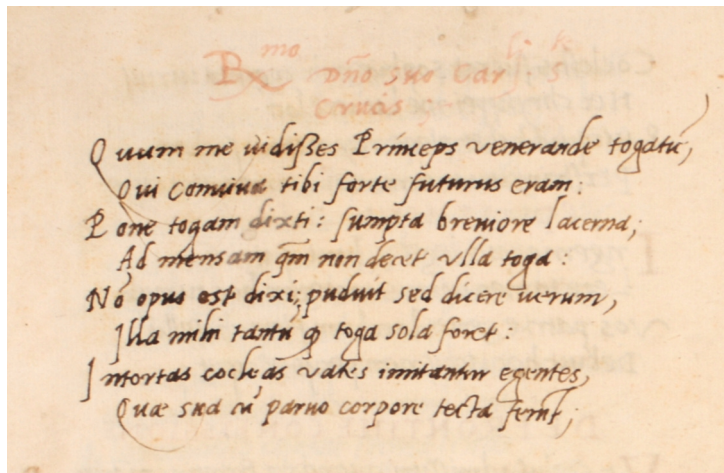 R.mo Dño suo Car.li S.te
Crucis
Quum me uidisses Princeps venerande togatū,
Qui conuiua tibi forte futurus eram:
Pone togam dixti: sumpta breuiore lacerna,
Ad mensam qm̃ non decet vlla toga:
Nō opus est dixi; puduit sed dicere uerum,
Illa mihi tantū ꝙ toga sola foret:
Intortas cocleas vates imitantur egentes,
Quæ sua cū paruo corpore tecta ferūt;